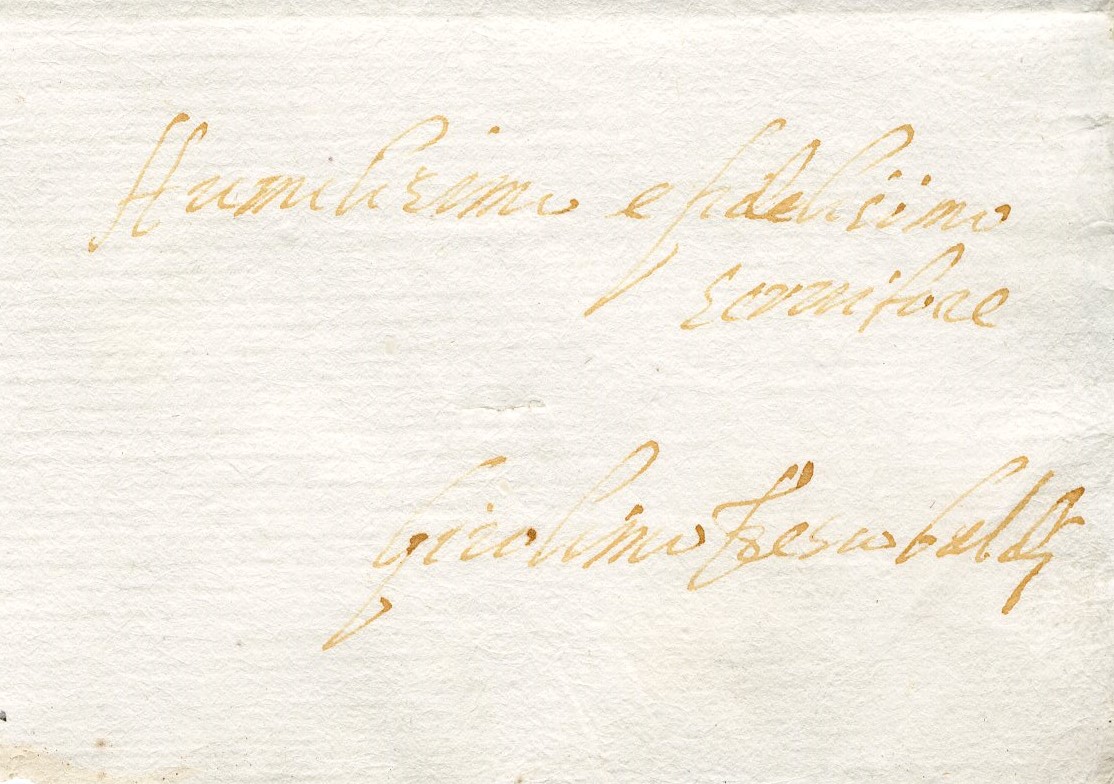 Humilisimo e fidelisimo
servitore
Girolimo Frescobaldi